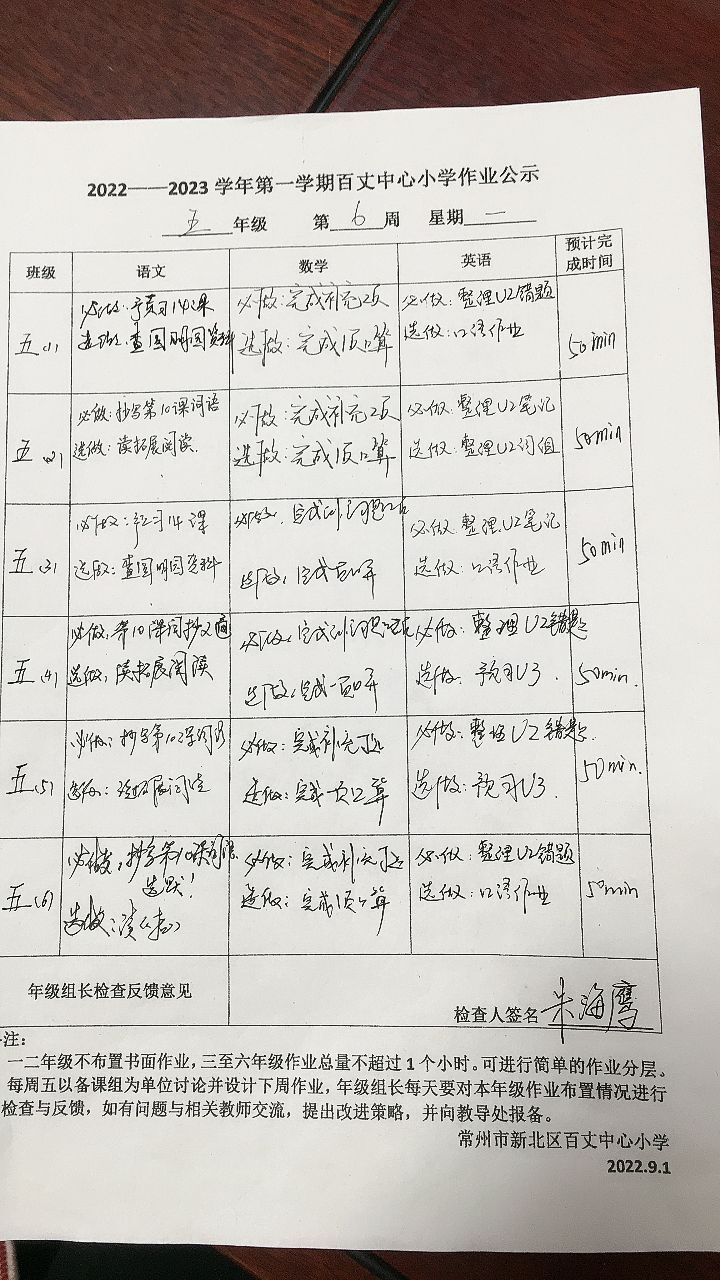 2022——2023 学年第一学期百丈中心小学作业公示
五 年级 第 6 周 星期 一
班级 语文 数学 英语 预计完成时间
五(1)
必做:预习14课
选做:查圆明园资料
必做:完成补充2页
选做:完成1页口算
必做:整理U2错题
选做:口语作业
50min
五(2)
必做:抄写第10课词语
选做:读拓展阅读.
必做:完成补充2页
选做:完成1页口算
必做:整理U2笔记
选做:整理U2词组
50min
五(3)
必做:预习14课
选做:查圆明园资料
必做:完成
选做:完成一页口算
必做:整理U2笔记
选做:口语作业
50min
五(4)
必做:第10课词抄
选做:读拓展阅读
必做:完成
选做:完成一页口算
必做:整理U2错题
选做:预习U3.
50min.
五(5)
必做:抄写第10课词语
选做:
必做:完成补充
选做:完成一页口算
必做:整理U2错题.
选做:预习U3.
50min.
五(6)
必做:抄写第10课词语
选做:读
必做:完成补充
选做:完成1页口算
必做:整理U2错题
选做:口语作业
50min
年级组长检查反馈意见
检查人签名 朱海鹰
注:
一二年级不布置书面作业,三至六年级作业总量不超过 1 个小时。可进行简单的作业分层。
每周五以备课组为单位讨论并设计下周作业,年级组长每天要对本年级作业布置情况进行
检查与反馈,如有问题与相关教师交流,提出改进策略,并向教导处报备。
常州市新北区百丈中心小学
2022.9.1